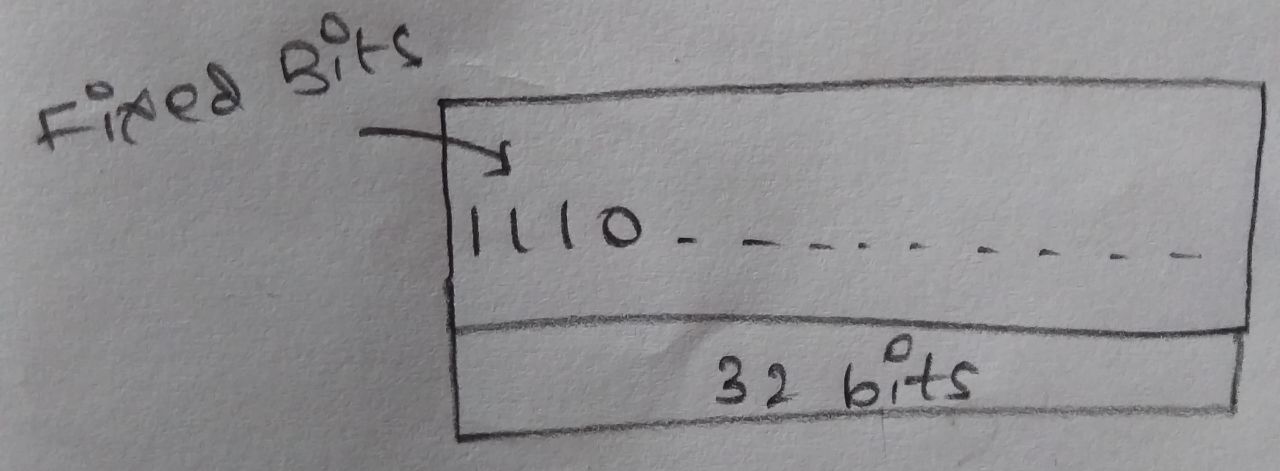 Fixed Bits
1110 - - - - - - - - -
32 bits